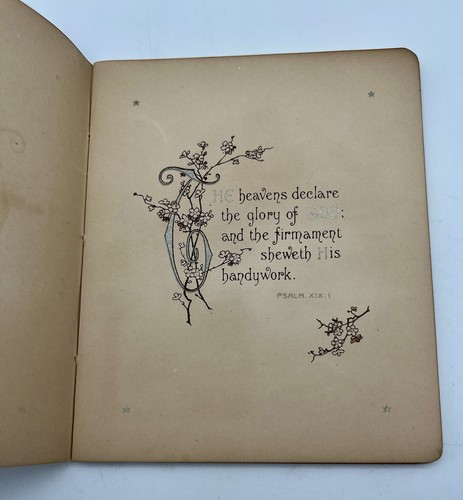 THE heavens declare
the glory of GOD:
and the firmament
sheweth His
handywork.
PSALM. XIX. I